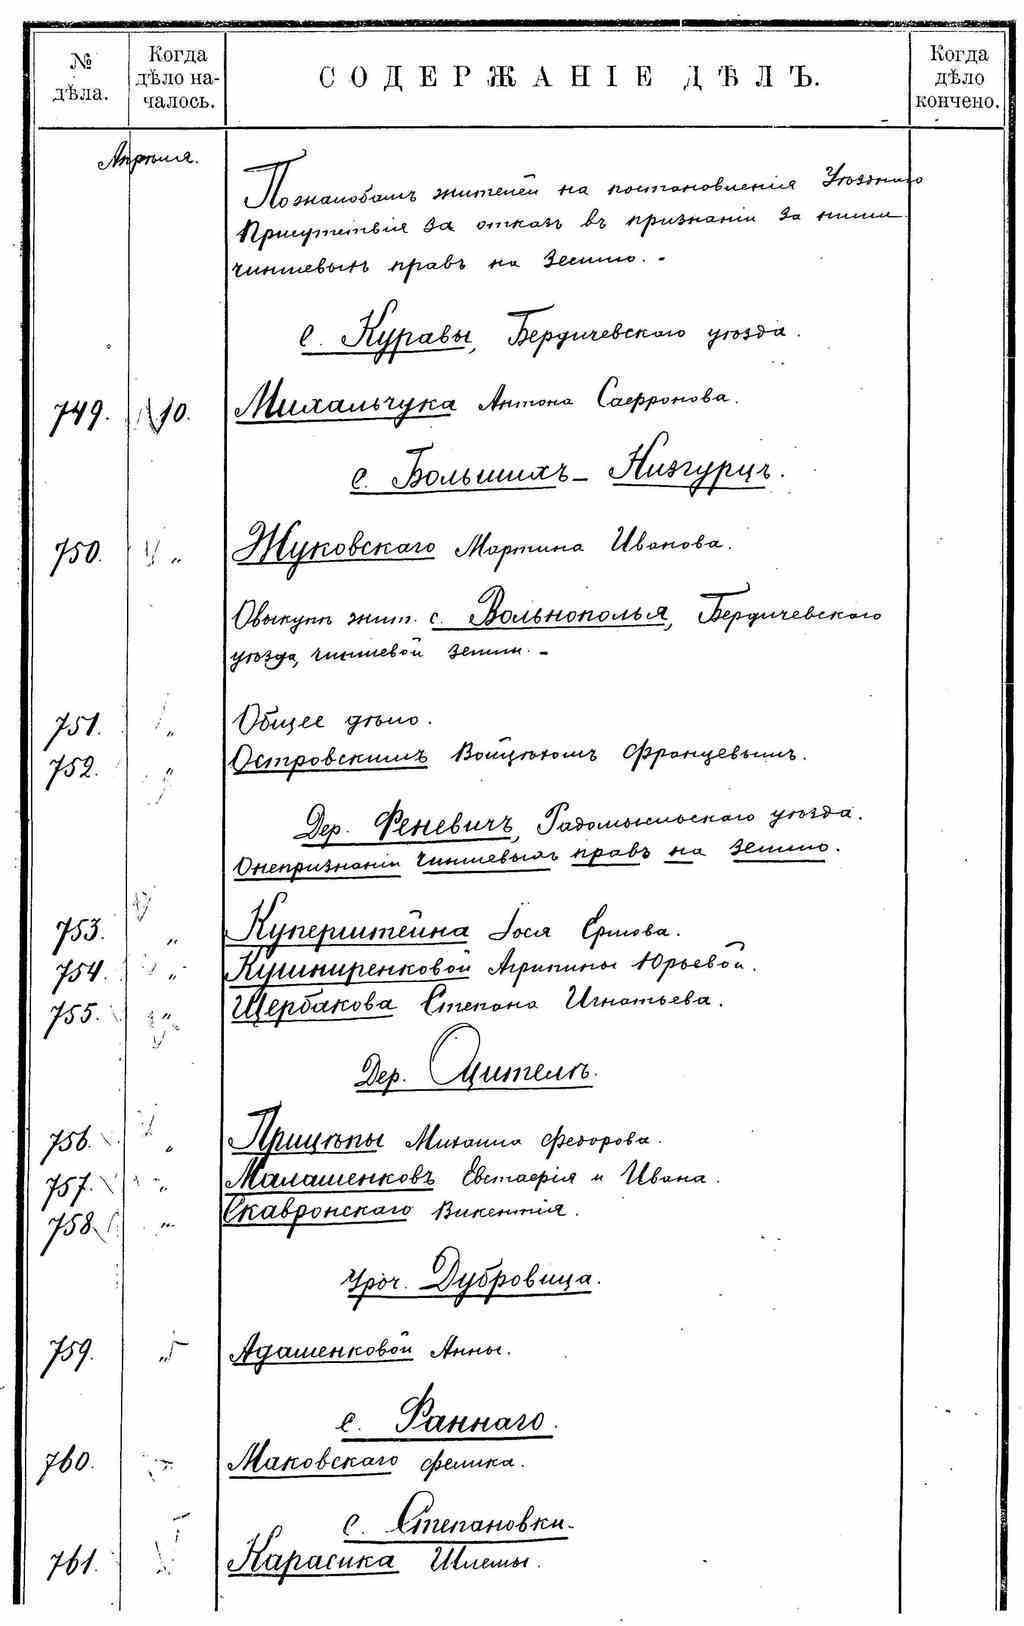 № дѣла.
Когда дѣло на-чалось.
СОДЕРЖАНІЕ ДѢЛЪ.
Когда дѣло кончено.
Апрѣля.
По жалобамъ жителей на постановленія Уѣзднаго
Присутствія за отказъ въ признаніи за ними
чиншевыхъ правъ на землю.-
с. Куравы, Бердичевскаго уѣзда.
749. 10. Михальчука Антона Саефронова.
с. Большихъ-Низгурцъ.
750. " Жуковскаго Мартина Иванова.
О выкупѣ жит. с. Вольнополья, Бердичевскаго
уѣзда, чиншевой земли.-
751. " Общее дѣло.
752. " Островскимъ Войцѣхомъ Францевымъ.
Дер. Феневичъ, Радомысльскаго уѣзда.
О непризнаніи чиншевыхъ правъ на землю.
753. " Куперштейна Іося Ермова.
754. " Кушниренковой Агрипины Юрьевой.
755. " Щербакова Степана Игнатьева.
Дер. Оцителъ.
756. " Прицѣпы Михаила Федорова.
757. " Малашенковъ Евстафія и Ивана.
758. " Скавронскаго Викентія.
Уроч. Дубровица.
759. " Адашенковой Анны.
с. Раннаго.
760. " Маковскаго Феликса.
с. Степановки.
761. Карасика Шлемы.